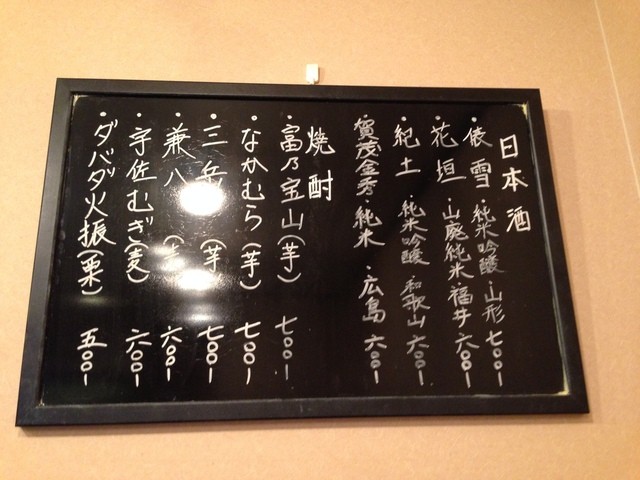 日本酒
・俵雪・純米吟醸・山形 七〇〇ー
・花垣・山廃純米・福井 六〇〇ー
・紀土・純米吟醸・和歌山 六〇〇ー
・賀茂金秀・純米・広島 六〇〇ー
焼酎
・富乃宝山(芋) 七〇〇ー
・なかむら(芋) 七〇〇ー
・三岳(芋) 七〇〇ー
・兼八 六〇〇ー
・宇佐むぎ(麦) 六〇〇ー
・ダバダ火振(栗) 五〇〇ー